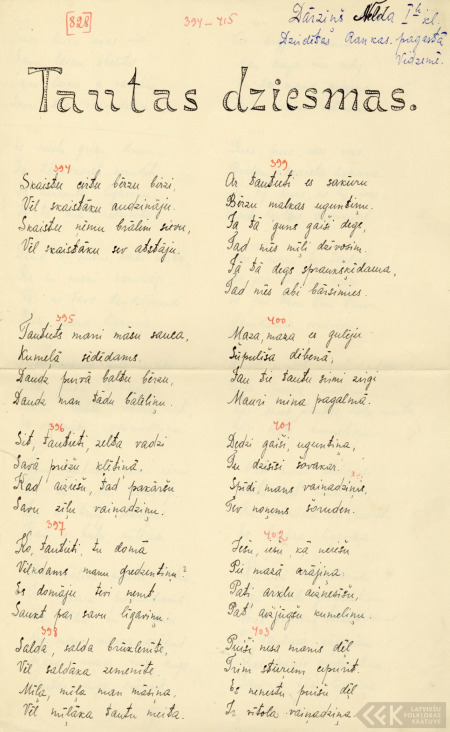 [828]
394-415
Dārziņš Nelda I kl.
Dzirdētas Rankas pagastā
Vidzemē.
Tautas dziesmas.
394
Skaistu cirtu bērzu birzi,
Vēl skaistāku audzināju.
Skaistu ņēmu brālim sievu,
Vēl skaistāku sev atstāju.
395
Tautiets mani māsu sauca,
Kumeļā sēdēdams.
Daudz purvā baltu bērzu,
Daudz man tādu bāleliņu.
396
Sit, tautieti, zelta vadzi
Savā priežu klētiņā,
Kad aiziešu, tad pakāršu
Savu zīļu vainadziņu.
397
Ko, tautieti, tu domā
Vilkdams manu gredzentiņu?
Es domāju tevi ņemt,
Saukt par savu līgaviņu.
398
Salda, salda brūklenīte,
Vēl saldāka zemenīte.
Mīļa, mīļa man māsiņa,
Vēl mīļāka tautu meita.
399
Ar tautieti es sakūru
Bērzu malkas uguntiņu.
Ja tā guns gaiši degs,
Tad mēs mīļi dzīvosim.
Ja tā degs sprauksķēdama,
Tad mēs abi bārsimies.
400
Maza, maza es gulēju
Šūpulīša dibenā,
Jau tie tautu sirmi zirgi
Mauri mina pagalmā.
401
Dedzi gaiši, uguntiņa,
Tu dzisīsi šovakar.
Spīdi, mans vainadziņis,
Tev noņems šoruden.
402
Iešu, iešu, kā neiešu
Pie mazā arājiņa:
Pati arklu aiznesīšu,
Pat' aizjūgšu kumeliņu.
403
Puiši nesa manis dēļ
Trim stūriem cepurīt.
Es nenestu puišu dēļ
Ir vītola vainadziņa.
LATVIEŠU
FOLKLORAS
KRĀTUVE